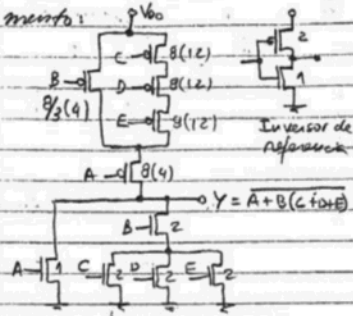 mento:
VDD
C 8(12)
2
B D 8(12)
1
8/3(4)
E 8(12)
Inversor de
referencia
A 8(4)
Y = \overline{A+B(C+D+E)}
B 2
A 1 C 2 D 2 E 2